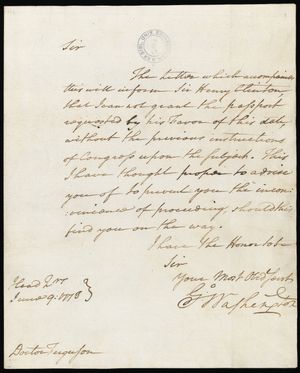 Sir
The Letter which accompanies
this will inform Sir Henry Clinton,
that I can not grant the passport
requested by his Favor of this date,
without the previous instructions
of Congress upon the subject. This
I have thought proper to advise
you of to prevent you the incon-
-venience of proceeding, should this
find you on the way.
I have the Honor to be
Sir
Your Most Obed Servt
Go Washington
Head Qrs
June 9. 1778
Doctor Ferguson